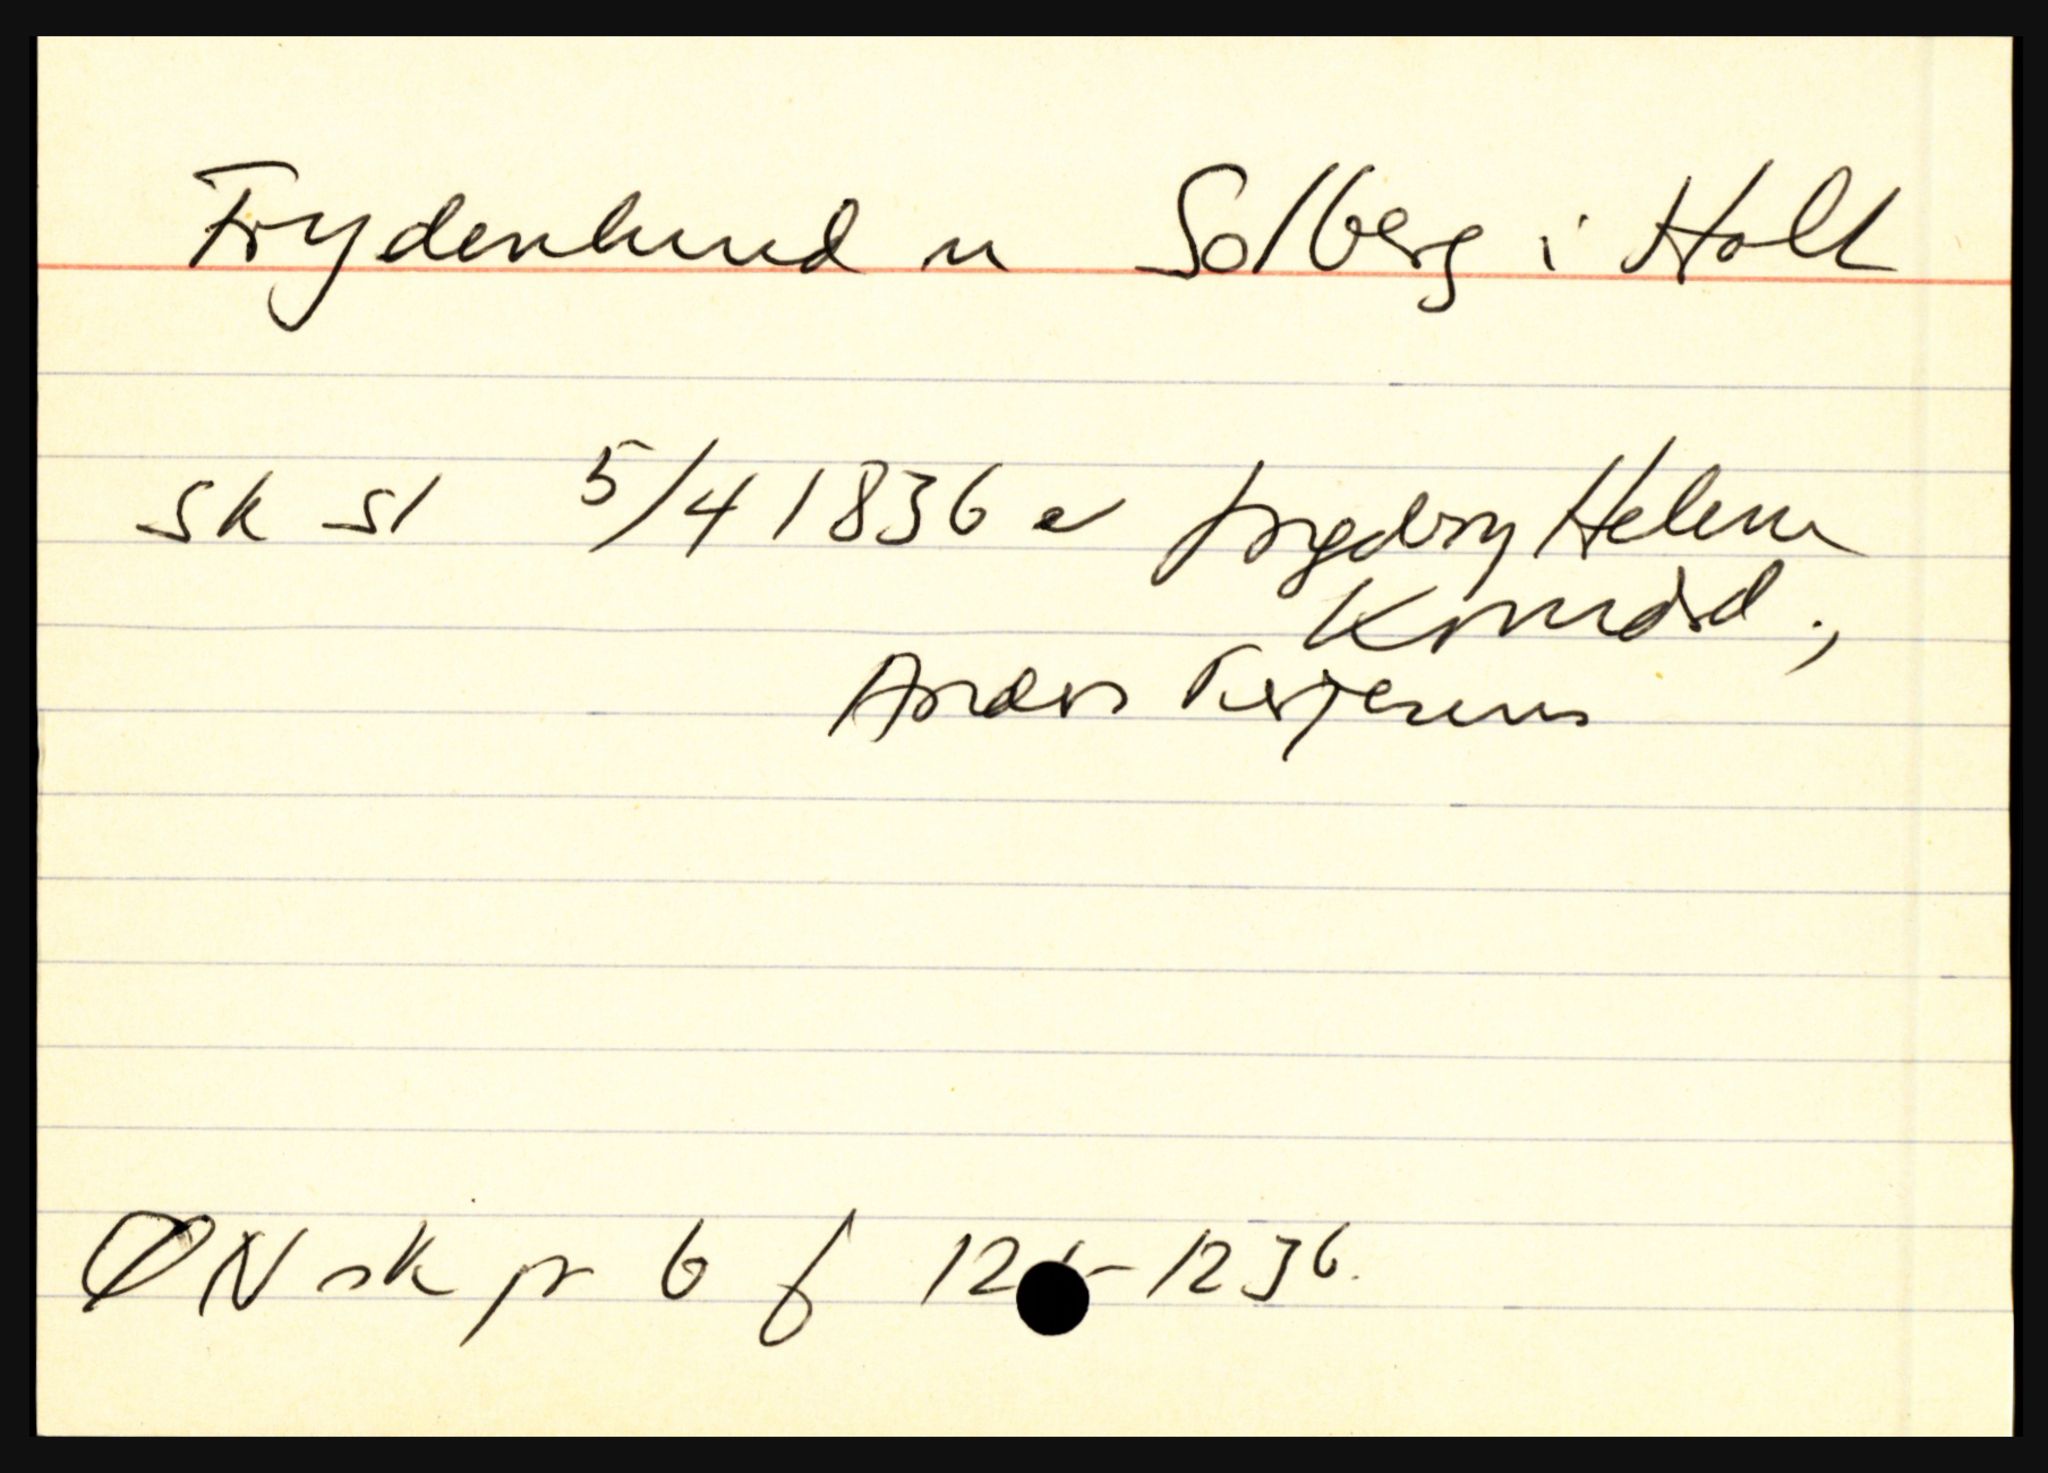 Frydenlund u Solberg i Holt
sk sl 5/4 1836 e Ingebrg Helene
Konradsd.,
Anders Terjesens
ØN sk pr 6 f 12 - 1236.